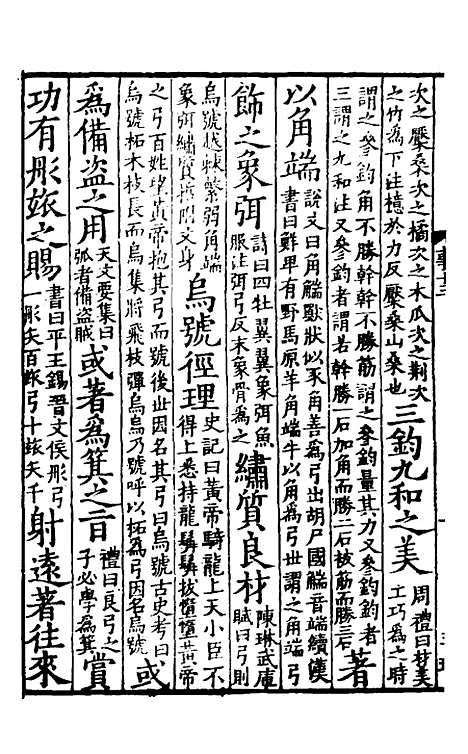 次之檿桑次之橘次之木瓜次之荆次之竹為下注檍於力反檿桑山桑也三鈞九和之美周禮曰材美工巧為之時
謂之參鈞角不勝幹幹不勝筋謂之參鈞量其力又參鈞鈞者三謂之九和注又參鈞者謂若幹勝一石加角而勝二石被筋而勝三石著
以角端說文曰角觿獸狀似豕角善為弓出胡尸國觿音端續漢書曰鮮卑有野馬原羊角端牛以角為弓世謂之角端弓
飾之象弭詩曰四牡翼翼象弭魚服注弭弓反末象骨為之繡質良材陳琳武庫賦曰弓則
烏號越棘繁弱角端象弭繡質文身烏號徑理史記曰黃帝騎龍上天小臣不得上悉持龍髯髯拔墮墮黃帝
之弓百姓望黃帝抱其弓而號後世因名其弓曰烏號古史考曰烏號柘木枝長而烏集將飛枝彈烏烏乃號呼以柘為弓因名烏號或
為備盗之用天文要集曰弧者備盗賊或著為箕之言禮曰良弓之子必學為箕賞
功有彤玈之賜書曰平王錫晉文侯彤弓一彤矢百玈弓十玈矢千射遠著往來